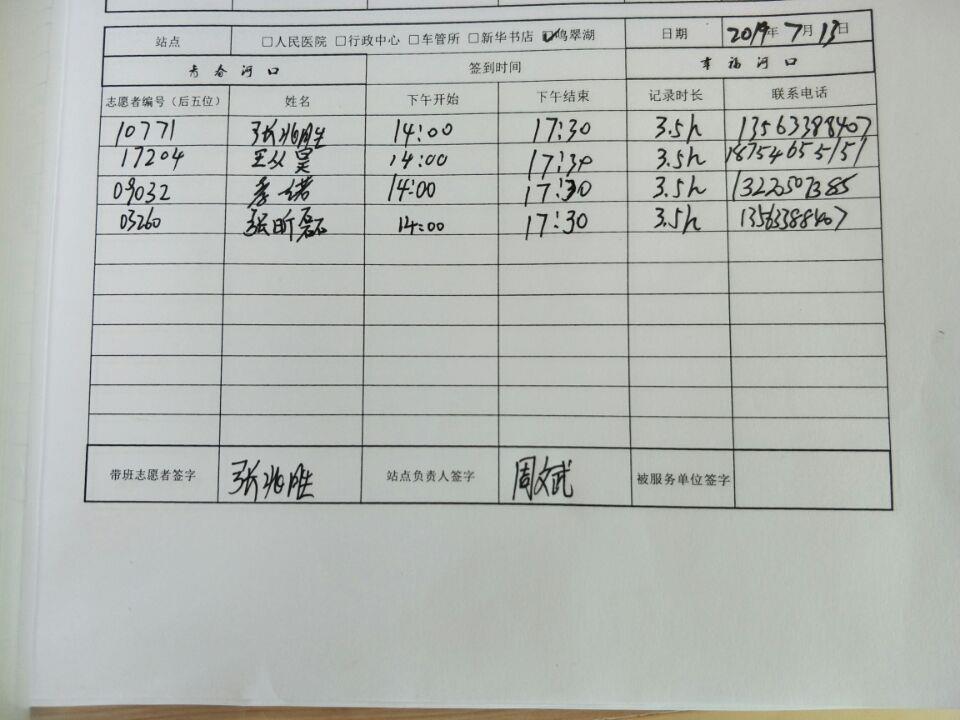 站点 □人民医院 □行政中心 □车管所 □新华书店 ☑鸣翠湖 日期 2019年7月13日
青春河口 签到时间 幸福河口
志愿者编号（后五位） 姓名 下午开始 下午结束 记录时长 联系电话
10771 张兆胜 14:00 17:30 3.5h 13563388407
17204 王从昊 14:00 17:30 3.5h 18754655151
09032 李诺 14:00 17:30 3.5h 13225073385
03260 张昕磊 14:00 17:30 3.5h 13563388407
带班志愿者签字 张兆胜 站点负责人签字 周文武 被服务单位签字